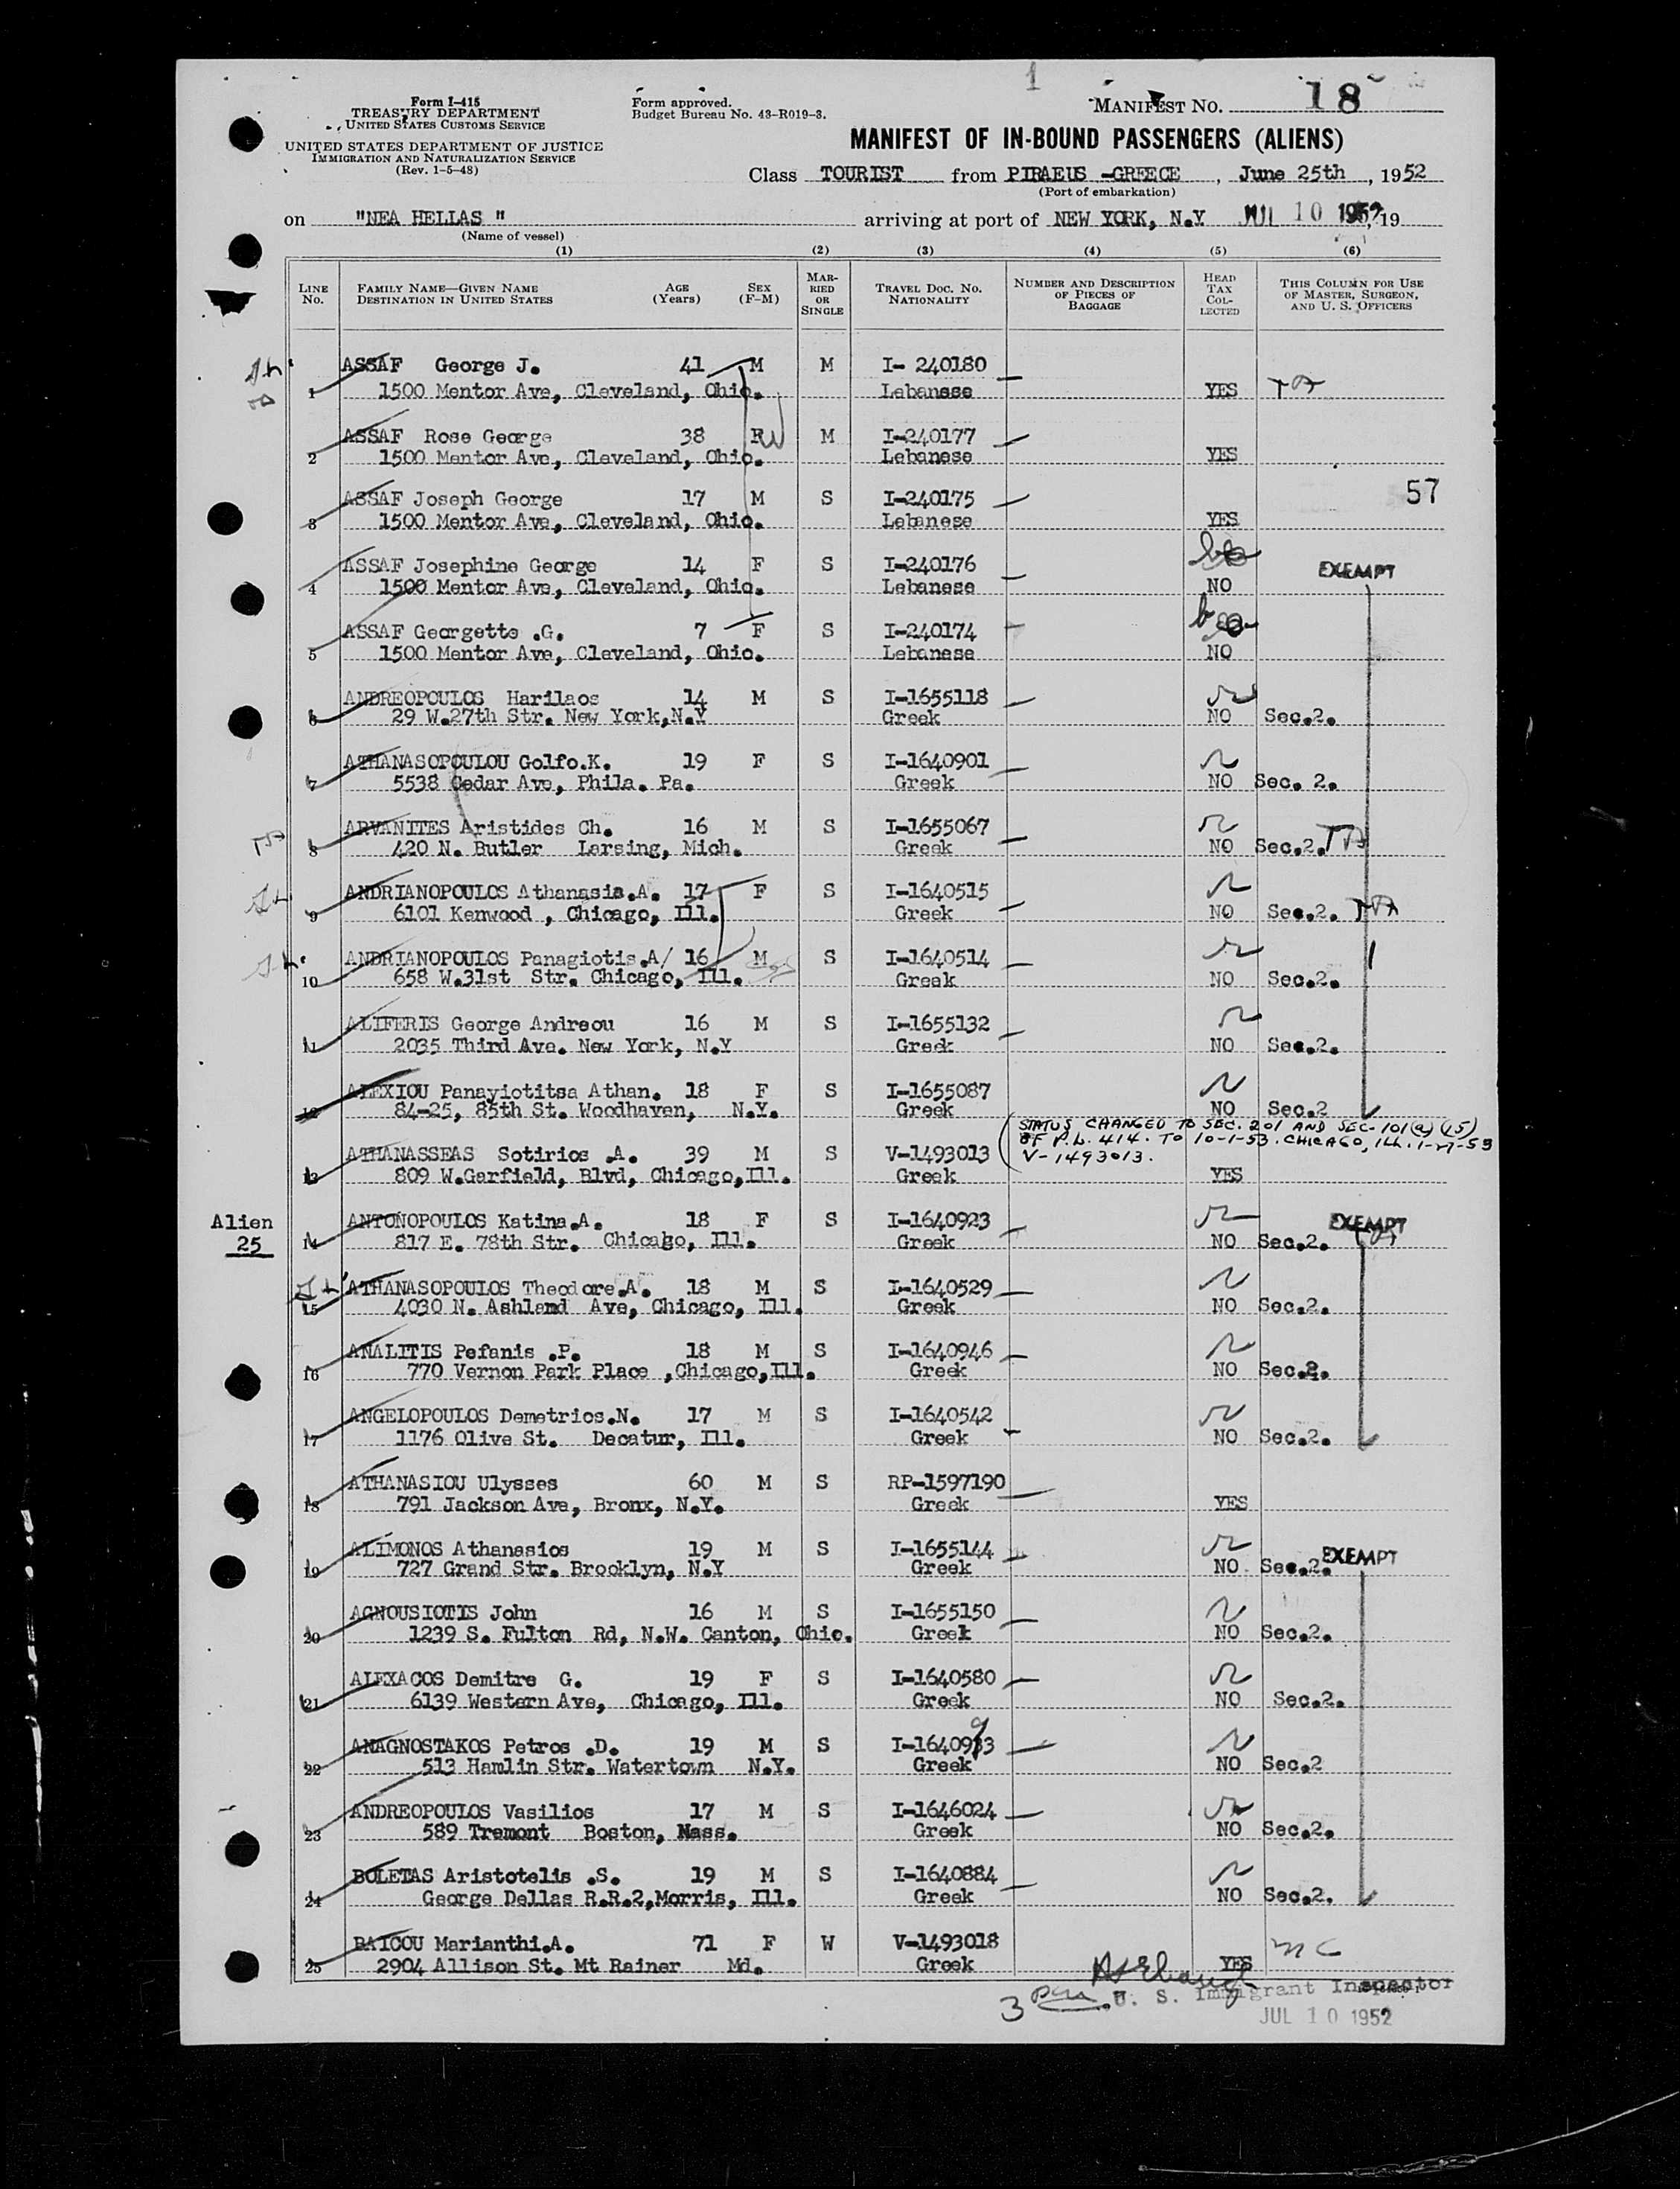 1
Form I-415
TREASURY DEPARTMENT
UNITED STATES CUSTOMS SERVICE
UNITED STATES DEPARTMENT OF JUSTICE
IMMIGRATION AND NATURALIZATION SERVICE
(Rev. 1-5-48)
Form approved.
Budget Bureau No. 43-R019-3.
MANIFEST NO. 18
MANIFEST OF IN-BOUND PASSENGERS (ALIENS)
Class TOURIST from PIRAEUS -GREECE, June 25th, 1952
(Port of embarkation)
on "NEA HELLAS" arriving at port of NEW YORK, N.Y JUL 10 1952, 19
(Name of vessel)
(1) (2) (3) (4) (5) (6)
LINE No. FAMILY NAME—GIVEN NAME DESTINATION IN UNITED STATES AGE (Years) SEX (F-M) MARRIED OR SINGLE TRAVEL DOC. NO. NATIONALITY NUMBER AND DESCRIPTION OF PIECES OF BAGGAGE HEAD TAX COLLECTED THIS COLUMN FOR USE OF MASTER, SURGEON, AND U. S. OFFICERS
ASSAF George J. 41 M M I- 240180
1 1500 Mentor Ave, Cleveland, Ohio. Lebanese YES
ASSAF Rose George 38 F M I-240177
2 1500 Mentor Ave, Cleveland, Ohio. Lebanese YES
ASSAF Joseph George 17 M S I-240175 57
3 1500 Mentor Ave, Cleveland, Ohio. Lebanese YES
ASSAF Josephine George 14 F S I-240176 EXEMPT
4 1500 Mentor Ave, Cleveland, Ohio. Lebanese NO
ASSAF Georgette .G. 7 F S I-240174
5 1500 Mentor Ave, Cleveland, Ohio. Lebanese NO
ANDREOPOULOS Harilaos 14 M S I-1655118
6 29 W.27th Str. New York,N.Y Greek NO Sec.2.
ATHANASOPOULOU Golfo.K. 19 F S I-1640901
7 5538 Cedar Ave, Phila. Pa. Greek NO Sec. 2.
ARVANITES Aristides Ch. 16 M S I-1655067
8 420 N. Butler Larsing, Mich. Greek NO Sec.2.
ANDRIANOPOULOS Athanasia.A. 17 F S I-1640515
9 6101 Kenwood , Chicago, Ill. Greek NO Sec.2.
ANDRIANOPOULOS Panagiotis.A/ 16 M S I-1640514
10 658 W.31st Str. Chicago, Ill. Greek NO Sec.2.
ALIFERIS George Andreou 16 M S I-1655132
11 2035 Third Ave. New York, N.Y Greek NO Sec.2.
ALEXIOU Panayiotitsa Athan. 18 F S I-1655087
12 84-25, 85th St. Woodhaven, N.Y. Greek NO Sec.2
STATUS CHANGED TO SEC. 201 AND SEC-101(a)(15)
OF P.L. 414. TO 10-1-53. CHICAGO, ILL. 1-27-53
V-1493013.
ATHANASSEAS Sotirios .A. 39 M S V-1493013
13 809 W.Garfield, Blvd, Chicago,Ill. Greek YES
Alien
25
ANTONOPOULOS Katina.A. 18 F S I-1640923 EXEMPT
14 817 E. 78th Str. Chicago, Ill. Greek NO Sec.2.
ATHANASOPOULOS Theodore.A. 18 M S I-1640529
15 4030 N. Ashland Ave, Chicago, Ill. Greek NO Sec.2.
ANALITIS Pefanis .P. 18 M S I-1640946
16 770 Vernon Park Place ,Chicago,Ill. Greek NO Sec.2.
ANGELOPOULOS Demetrios.N. 17 M S I-1640542
17 1176 Olive St. Decatur, Ill. Greek NO Sec.2.
ATHANASIOU Ulysses 60 M S RP-1597190
18 791 Jackson Ave, Bronx, N.Y. Greek YES
ALIMONOS Athanasios 19 M S I-1655144 EXEMPT
19 727 Grand Str. Brooklyn, N.Y Greek NO. Sec.2.
AGNOUSIOTIS John 16 M S I-1655150
20 1239 S. Fulton Rd, N.W. Canton, Ohio. Greek NO Sec.2.
ALEXACOS Demitre G. 19 F S I-1640580
21 6139 Western Ave, Chicago, Ill. Greek NO Sec.2.
ANAGNOSTAKOS Petros .D. 19 M S I-1640993
22 513 Hamlin Str. Watertown N.Y. Greek NO Sec.2
ANDREOPOULOS Vasilios 17 M S I-1646024
23 589 Tremont Boston, Mass. Greek NO Sec.2.
BOLETAS Aristotelis .S. 19 M S I-1640884
24 George Dellas R.R.2,Morris, Ill. Greek NO Sec.2.
BAICOU Marianthi.A. 71 F W V-1493018
25 2904 Allison St. Mt Rainer Md. Greek YES
3
U. S. Immigrant Inspector
JUL 10 1952